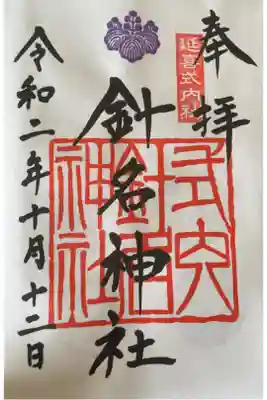 奉拝
延喜式内社
針名神社
式内針名神社
令和二年十月十二日